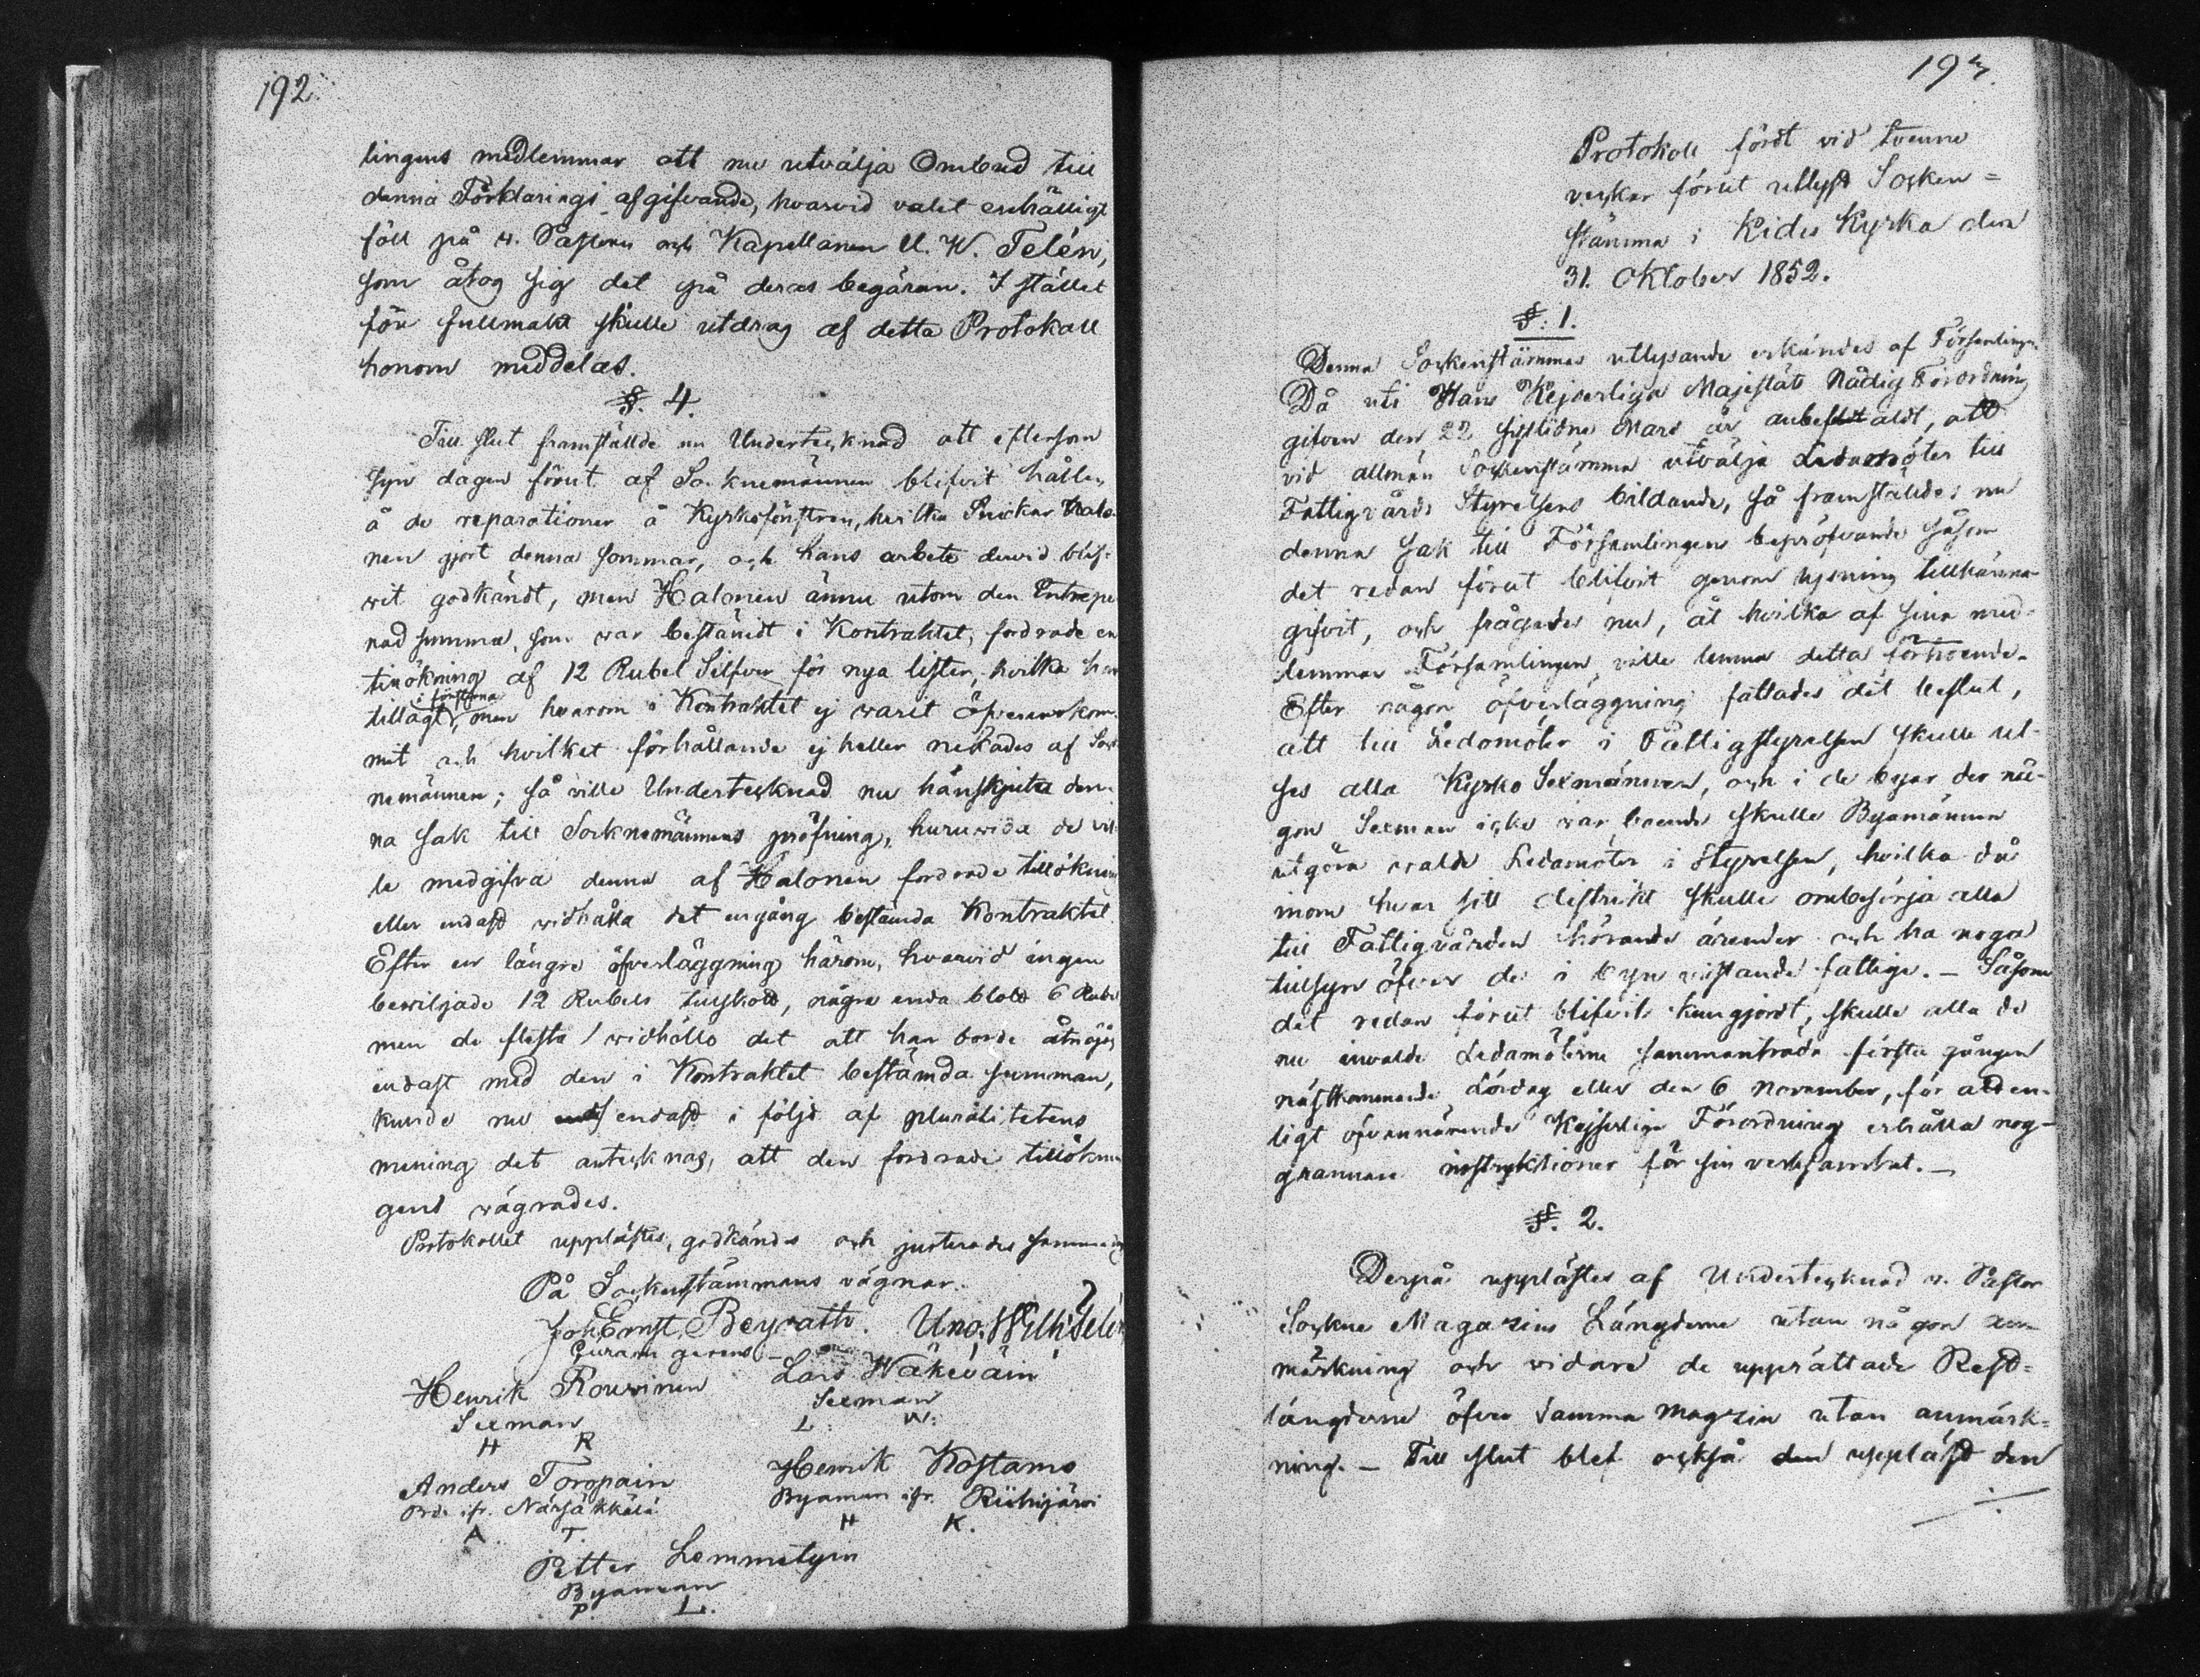 192.
lingens medlemmar att nu utvälja Ombud till
denna Förklarings afgifvande, hvarvid valet enhälligt
föll på v. Pastorn och Kapellanen U. W. Telén,
som åtog sig det på deras begäran. I stället
för fullmakt skulle utdrag af detta Protokoll
honom meddelas.
§. 4.
Till slut framställde nu Undertecknad att eftersom
syn dagen förut af Socknemännen blifvit hållen
å de reparationer å Kyrkofönstren, hvilka Snickar Halo-
nen gjort denna sommar, och hans arbete dervid blif-
wit godkändt, men Halonen ännu utom den Entrepe-
nad summa, som war bestämdt i Kontraktet, fordrade en
tillökning af 12 Rubel Silfver för nya lister, hvilka han
i fönstren
tillagt, men hvarom i Kontraktet ej warit öfverenskom-
mit och hvilket förhållande ej heller nekades af Sock-
nemännen; så ville Undertecknad nu hänskjuta den-
na sak till Socknemännens pröfning, huruwida de vil-
le medgifva denna af Halonen fordrade tillökning
eller endast widhålla det engång bestämda Kontraktet.
Efter en längre öfverläggning härom, hvarvid ingen
bewiljade 12 Rubels tillskott, några enda blott 6 Rubel
men de flesta widhöllo det att han borde åtnöjas
endast med den i Kontraktet bestämda summan,
kunde nu endast i följd af pluralitetens
mening det antecknas, att den fordrade tillöknin
gens vägrades.
Protokollet upplästes, godkändes och justerades samma dag
På Sockenstämmans vägnar.
Joh Ernst Beyrath. Uno Wilh Telén
Curam gerens
Henrik Rouvinen Lars Wäkeväin
Sexman Sexman
H R L. W.
Anders Toropain Henrik Kostamo
Orde. ifr. Närsäkkälä Byaman ifr. Riihijärvi
A T. H K.
Petter Lemmetyin
Byaman
P. L.
193.
Protokoll fördt vid tvenne
veckor förut utlyst Socken=
stämma i Kides Kyrka den
31. Oktober 1852.
§. 1.
Denna Sockenstämmas utlysande erkändes af Församlingen.
Då uti Hans Kejserliga Majestäts Nådig Förordning
gifven den 22 sistlidne Mars är anbefaldt, att
vid allmän Sockenstämma utvälja Ledamöter till
Fattigvårds Styrelsens bildande, så framställdes nu
denna sak till Församlingens bepröfvande såsom
det redan förut blifvit genom lysning tillkänna-
gifvit, och frågades nu, åt hvilka af sina med-
lemmar Församlingen ville lemna detta förtroende.
Efter någon öfverläggning fattades det beslut,
att till Ledamöter i Fattigstyrelsen skulle ut-
ses alla Kyrko Sexmännen, och i de byar der nå-
gon Sexman icke var boende skulle Byamännen
utgöra valde Ledamöter i Styrelsen, hvilka då
inom hvar sitt distrikt skulle ombesörja alla
till Fattigvården hörande ärender och ha noga
tillsyn öfver de i byn vistande fattige. – Såsom
det redan förut blifvit kungjordt, skulle alla de
nu invalde Ledamöterne sammanträda första gången
nästkommande Lördag eller den 6 November, för att en-
ligt ofvannämnde Kejserliga Förordning erhålla nog-
grannare instruktioner för sin verksamhet. –
§. 2.
Derpå upplästes af Undertecknad v. Pastor
Sockne Magazins Längderne utan någon an-
märkning och vidare de upprättade Rest=
längderne öfver samma magazin utan anmärk=
ning. – Till slut blef också den uppläst den